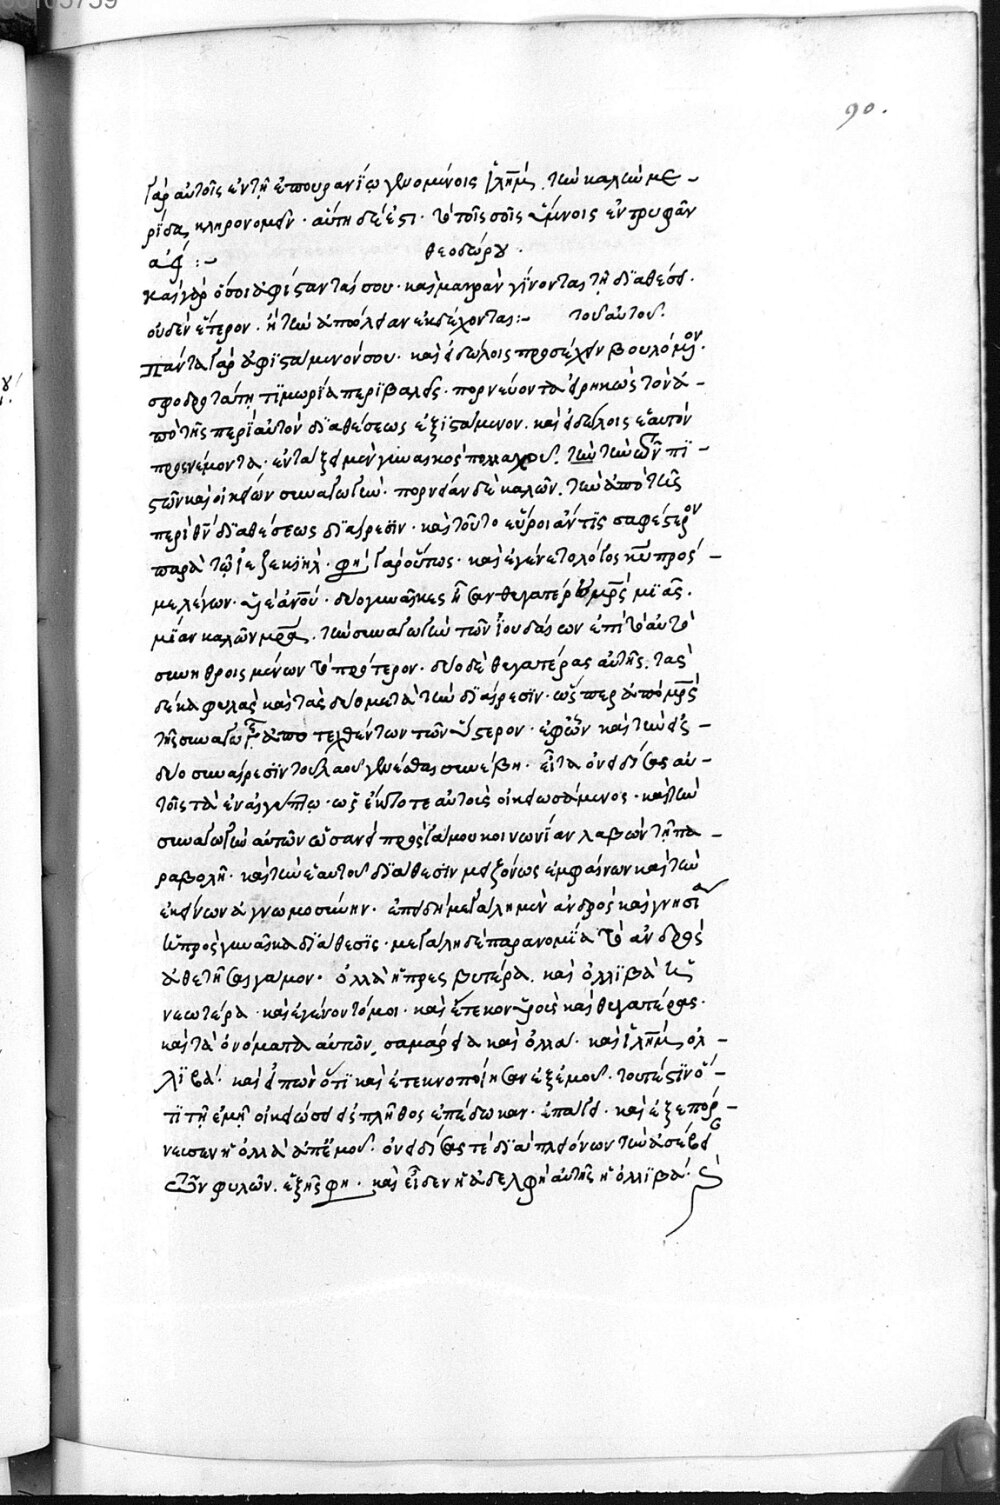 90.
γὰρ αὐτοῖς ἐν τῇ ἐπουρανίῳ γενομένοις ἱλὴμ. τὴν καλὴν με-
ρίδα κληρονομεῖν. αὕτη δέ ἐστι. τὸ τοῖς σοῖς ὕμνοις ἐντρυφᾶν
ἀεί :- θεοδώρου.
καὶ γὰρ ὅσοι ἀφίστανταί σου. καὶ μακρὰν γίνονται τῇ διαθέσει.
οὐδὲν ἕτερον. ἢ τὴν ἀπώλειαν ἐκδέχονται:- τοῦ αὐτοῦ.
πάντα γὰρ ἀφιστάμενόν σου. καὶ εἰδώλοις προσέχειν βουλόμενον.
σφοδροτάτῃ τιμωρίᾳ περιβαλεῖς. πορνεύοντα εἰρηκὼς τὸν ἀ-
πὸ τῆς περὶ αὐτὸν διαθέσεως ἐξιστάμενον. καὶ εἰδώλοις ἑαυτὸν
προσνέμοντα. ἐν τάξει μὲν γυναικὸς πολλαχοῦ. τὴν τῶν πι-
στῶν καὶ οἰκείων συναγωγήν. πορνείαν δὲ καλῶν. τὴν ἀπὸ τῆς
περὶ θν διαθέσεως διαίρεσιν. καὶ τοῦτο εὕροι ἄν τις σαφέστερον
παρὰ τῷ ἰεζεκιήλ. φησὶ γὰρ οὕτως. καὶ ἐγένετο λόγος κυ πρός
με λέγων. υἱὲ ἀνου. δύο γυναῖκες ἦσαν θυγατέρες μρς μιᾶς.
μίαν καλῶν μρα. τὴν συναγωγὴν τῶν ἰουδαίων ἐπὶ τὸ αὐτὸ
συνηθροισμένων τὸ πρότερον. δύο δὲ θυγατέρας αὐτῆς. τὰς
δέκα φυλὰς καὶ τὰς δύο μετὰ τὴν διαίρεσιν. ὥσπερ ἀπὸ μρς
τῆς συναγωγῆς ἀποτεχθέντων τῶν ὕστερον. ἐφ' ὧν καὶ τὴν εἰς
δύο συναίρεσιν τοῦ λαοῦ γενέσθαι συνέβη. εἶτα ὀνειδίσας αὐ-
τοῖς τὰ ἐν αἰγύπτῳ. ὡς ἔκτοτε αὐτοὺς οἰκειωσάμενος. καὶ τὴν
συναγωγὴν αὐτῶν ὡσανεὶ πρὸς γάμου κοινωνίαν λαβὼν τῇ πα-
ραβολῇ. καὶ τὴν ἑαυτοῦ διάθεσιν μειζόνως ἐμφαίνων καὶ τὴν
ἐκείνων ἀγνωμοσύνην. ἐπειδὴ μεγάλη μὲν ἀνδρὸς καὶ γνησία
ἡ πρὸς γυναῖκα διάθεσις. μεγάλη δὲ παρανομία τὸ ἀνδρὸς
ἀθετῆσαι γάμον. ὀλλὰ ἡ πρεσβυτέρα. καὶ ὀλλιβὰ ἡ
νεωτέρα. καὶ ἐγένοντό μοι. καὶ ἔτεκον υἱοὺς καὶ θυγατέρας.
καὶ τὰ ὀνόματα αὐτῶν, σαμάρεια καὶ ὀλλά. καὶ ἱλὴμ, ὀλ-
λιβά. καὶ εἰπὼν ὅτι καὶ ἐτεκνοποίησαν ἐξ ἐμοῦ. τουτέστιν ὅ-
τι τῇ ἐμῇ οἰκειώσει εἰς πλῆθος ἐπέδωκαν. ἐπάγει. καὶ ἐξεπόρ-
νευσεν ἡ ὀλλὰ ἀπ' ἐμοῦ. ὀνειδίσας τε διὰ πλειόνων τὴν ἀσέβει
τῶν φυλῶν. ἑξῆς φη. καὶ εἶδεν ἡ ἀδελφὴ αὐτῆς ἡ ὀλλιβά.